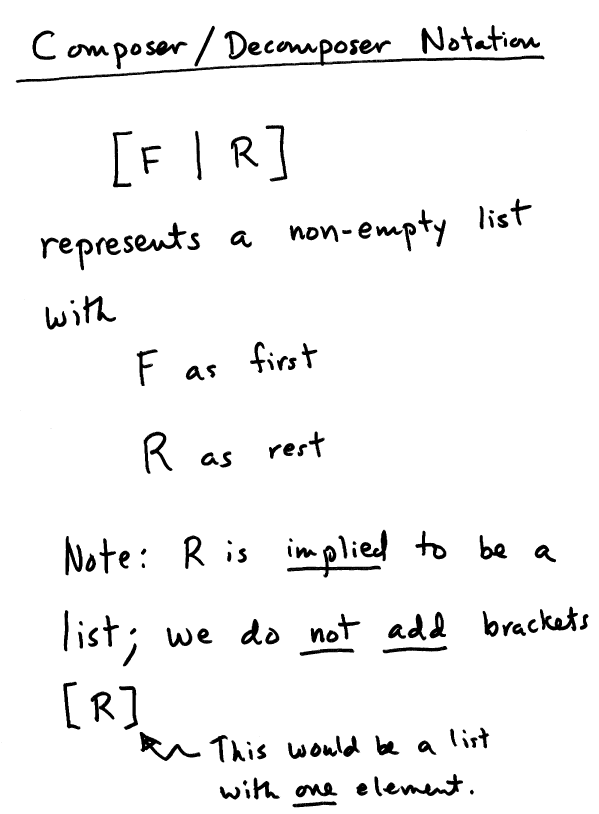 Composer/Decomposer Notation
[F | R]
represents a non-empty list
with
F as first
R as rest
Note: R is implied to be a
list; we do not add brackets
[R]
This would be a list
with one element.